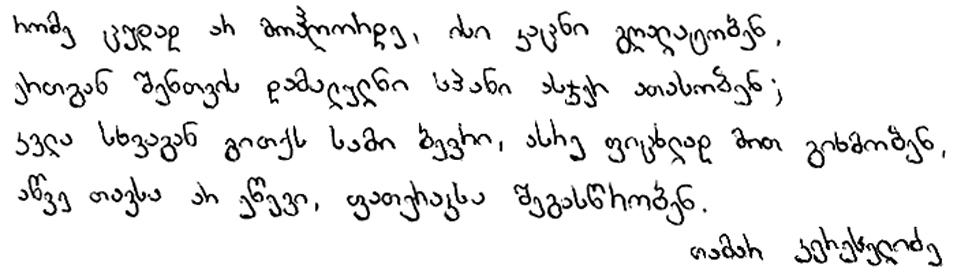 რომე ცუდად არ მოჰღორდე, ისი კაცნი გღალატობენ,
ერთგან შენთვის დამალულნი სპანი ასჯერ ათასობენ;
კვლა სხვაგან გითქს სამი ბევრი, ასრე ფიცხლად მით გიხმობენ,
აწვე თავსა არ ეწევი, ფათერაკსა შეგასწრობენ.
თამარ კერესელიძე